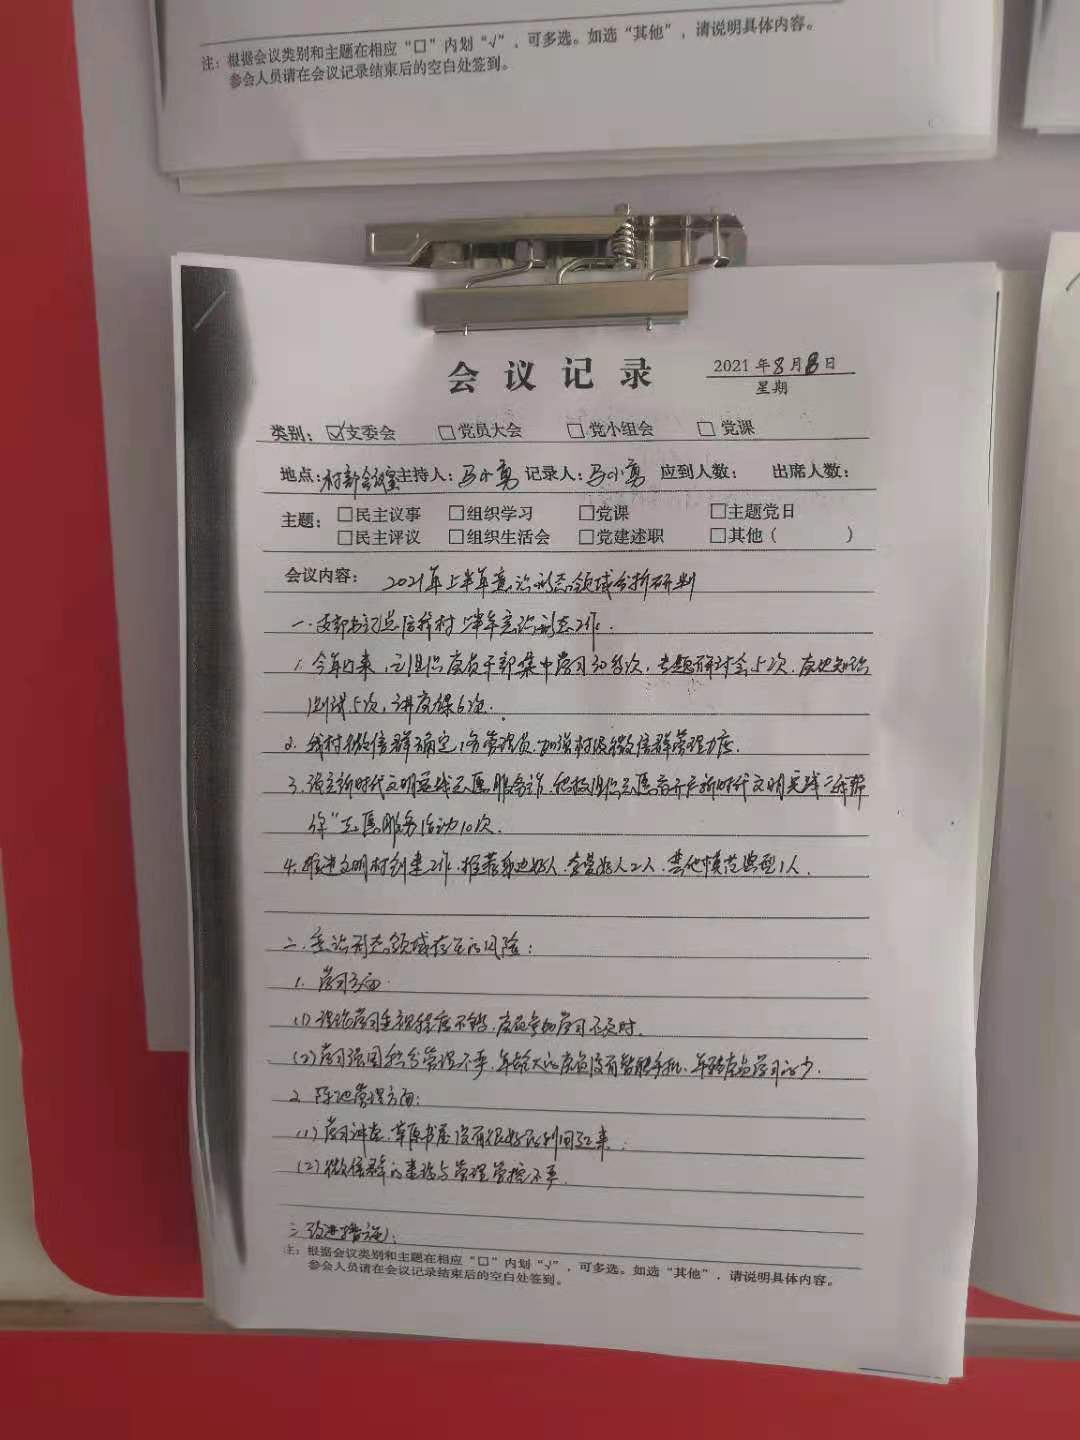 注：根据会议类别和主题在相应“□”内划“√”，可多选。如选“其他”，请说明具体内容。
参会人员请在会议记录结束后的空白处签到。
会议记录
2021年8月8日
星期
类别：☑支委会 □党员大会 □党小组会 □党课
地点：村部会议室 主持人：马小勇 记录人：马小勇 应到人数： 出席人数：
主题：□民主议事 □组织学习 □党课 □主题党日
□民主评议 □组织生活会 □党建述职 □其他（ ）
会议内容：2021年上半年意识形态领域分析研判
一.支部书记总结我村上半年意识形态工作.
1.今年以来,已组织党员干部集中学习30多次,专题研讨会5次.党史知识
测试5次,讲党课6次.
2.我村微信群确定1名管理员,加强村级微信群管理力度.
3.强立新时代文明实践志愿服务,积极组织志愿者开展新时代文明实践
"志愿服务活动10次.
4.推进文明村创建工作,推荐身边好人,好人2人,其他模范典型1人.
二.意识形态领域存在的风险:
1.学习方面.
(1)理论学习重视程度不够,党员参加学习不及时.
(2)学习强国积分管理不严,年龄大的党员没有智能手机,年轻党员学习的少.
2.阵地管理方面:
(1)学习讲堂.草原书屋没有很好的利用起来.
(2)微信群的建设与管理管控不严.
三.改进措施:
注：根据会议类别和主题在相应“□”内划“√”，可多选。如选“其他”，请说明具体内容。
参会人员请在会议记录结束后的空白处签到。